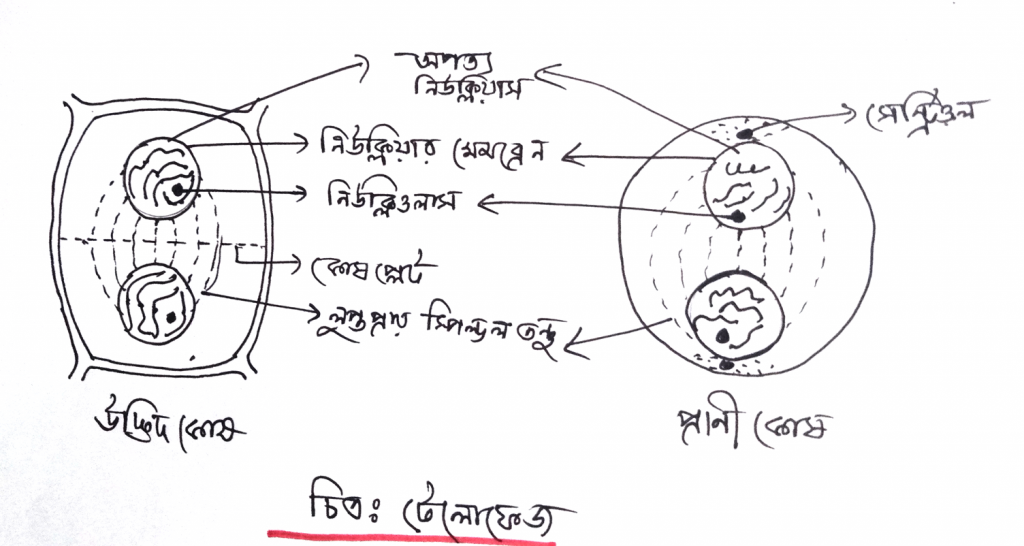 অপত্য
নিউক্লিয়াস
সেন্ট্রিওল
নিউক্লিয়ার মেমব্রেন
নিউক্লিওলাস
কোষ প্লেট
লুপ্তপ্রায় স্পিন্ডল তন্তু
উদ্ভিদ কোষ
প্রাণী কোষ
চিত্রঃ টেলোফেজ